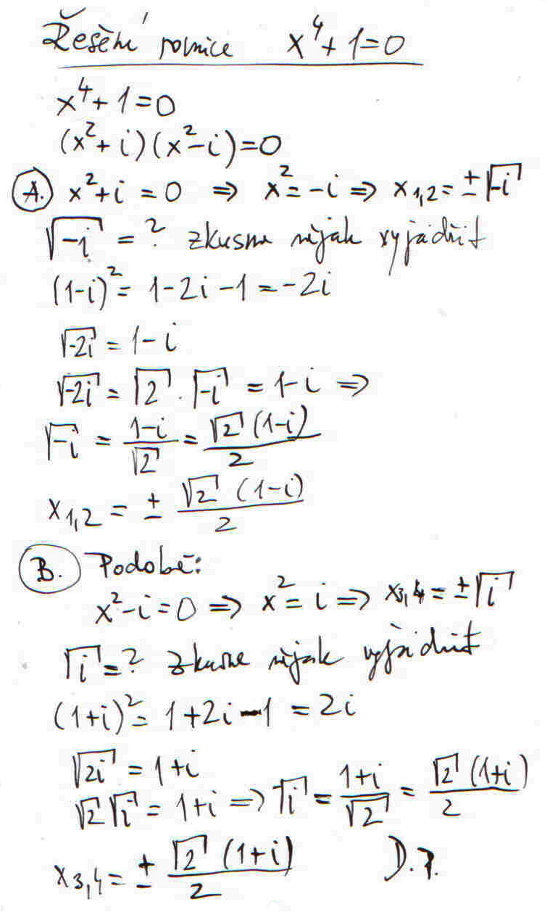 Řešení rovnice x⁴+1=0
x⁴+1=0
(x²+i)(x²-i)=0
A. x²+i=0 ⇒ x²=-i ⇒ x₁,₂=±√-i
√-i = ? zkusme nějak vyjádřit
(1-i)²= 1-2i-1=-2i
√-2i = 1-i
√-2i = √2 . √-i = 1-i ⇒
√-i = (1-i)/√2 = √2 (1-i)/2
x₁,₂ = ± √2 (1-i)/2
B. Podobě:
x²-i=0 ⇒ x²=i ⇒ x₃,₄=±√i
√i=? zkusme nějak vyjádřit
(1+i)²= 1+2i-1=2i
√2i = 1+i
√2 √i = 1+i ⇒ √i = (1+i)/√2 = √2 (1+i)/2
x₃,₄= ± √2 (1+i)/2